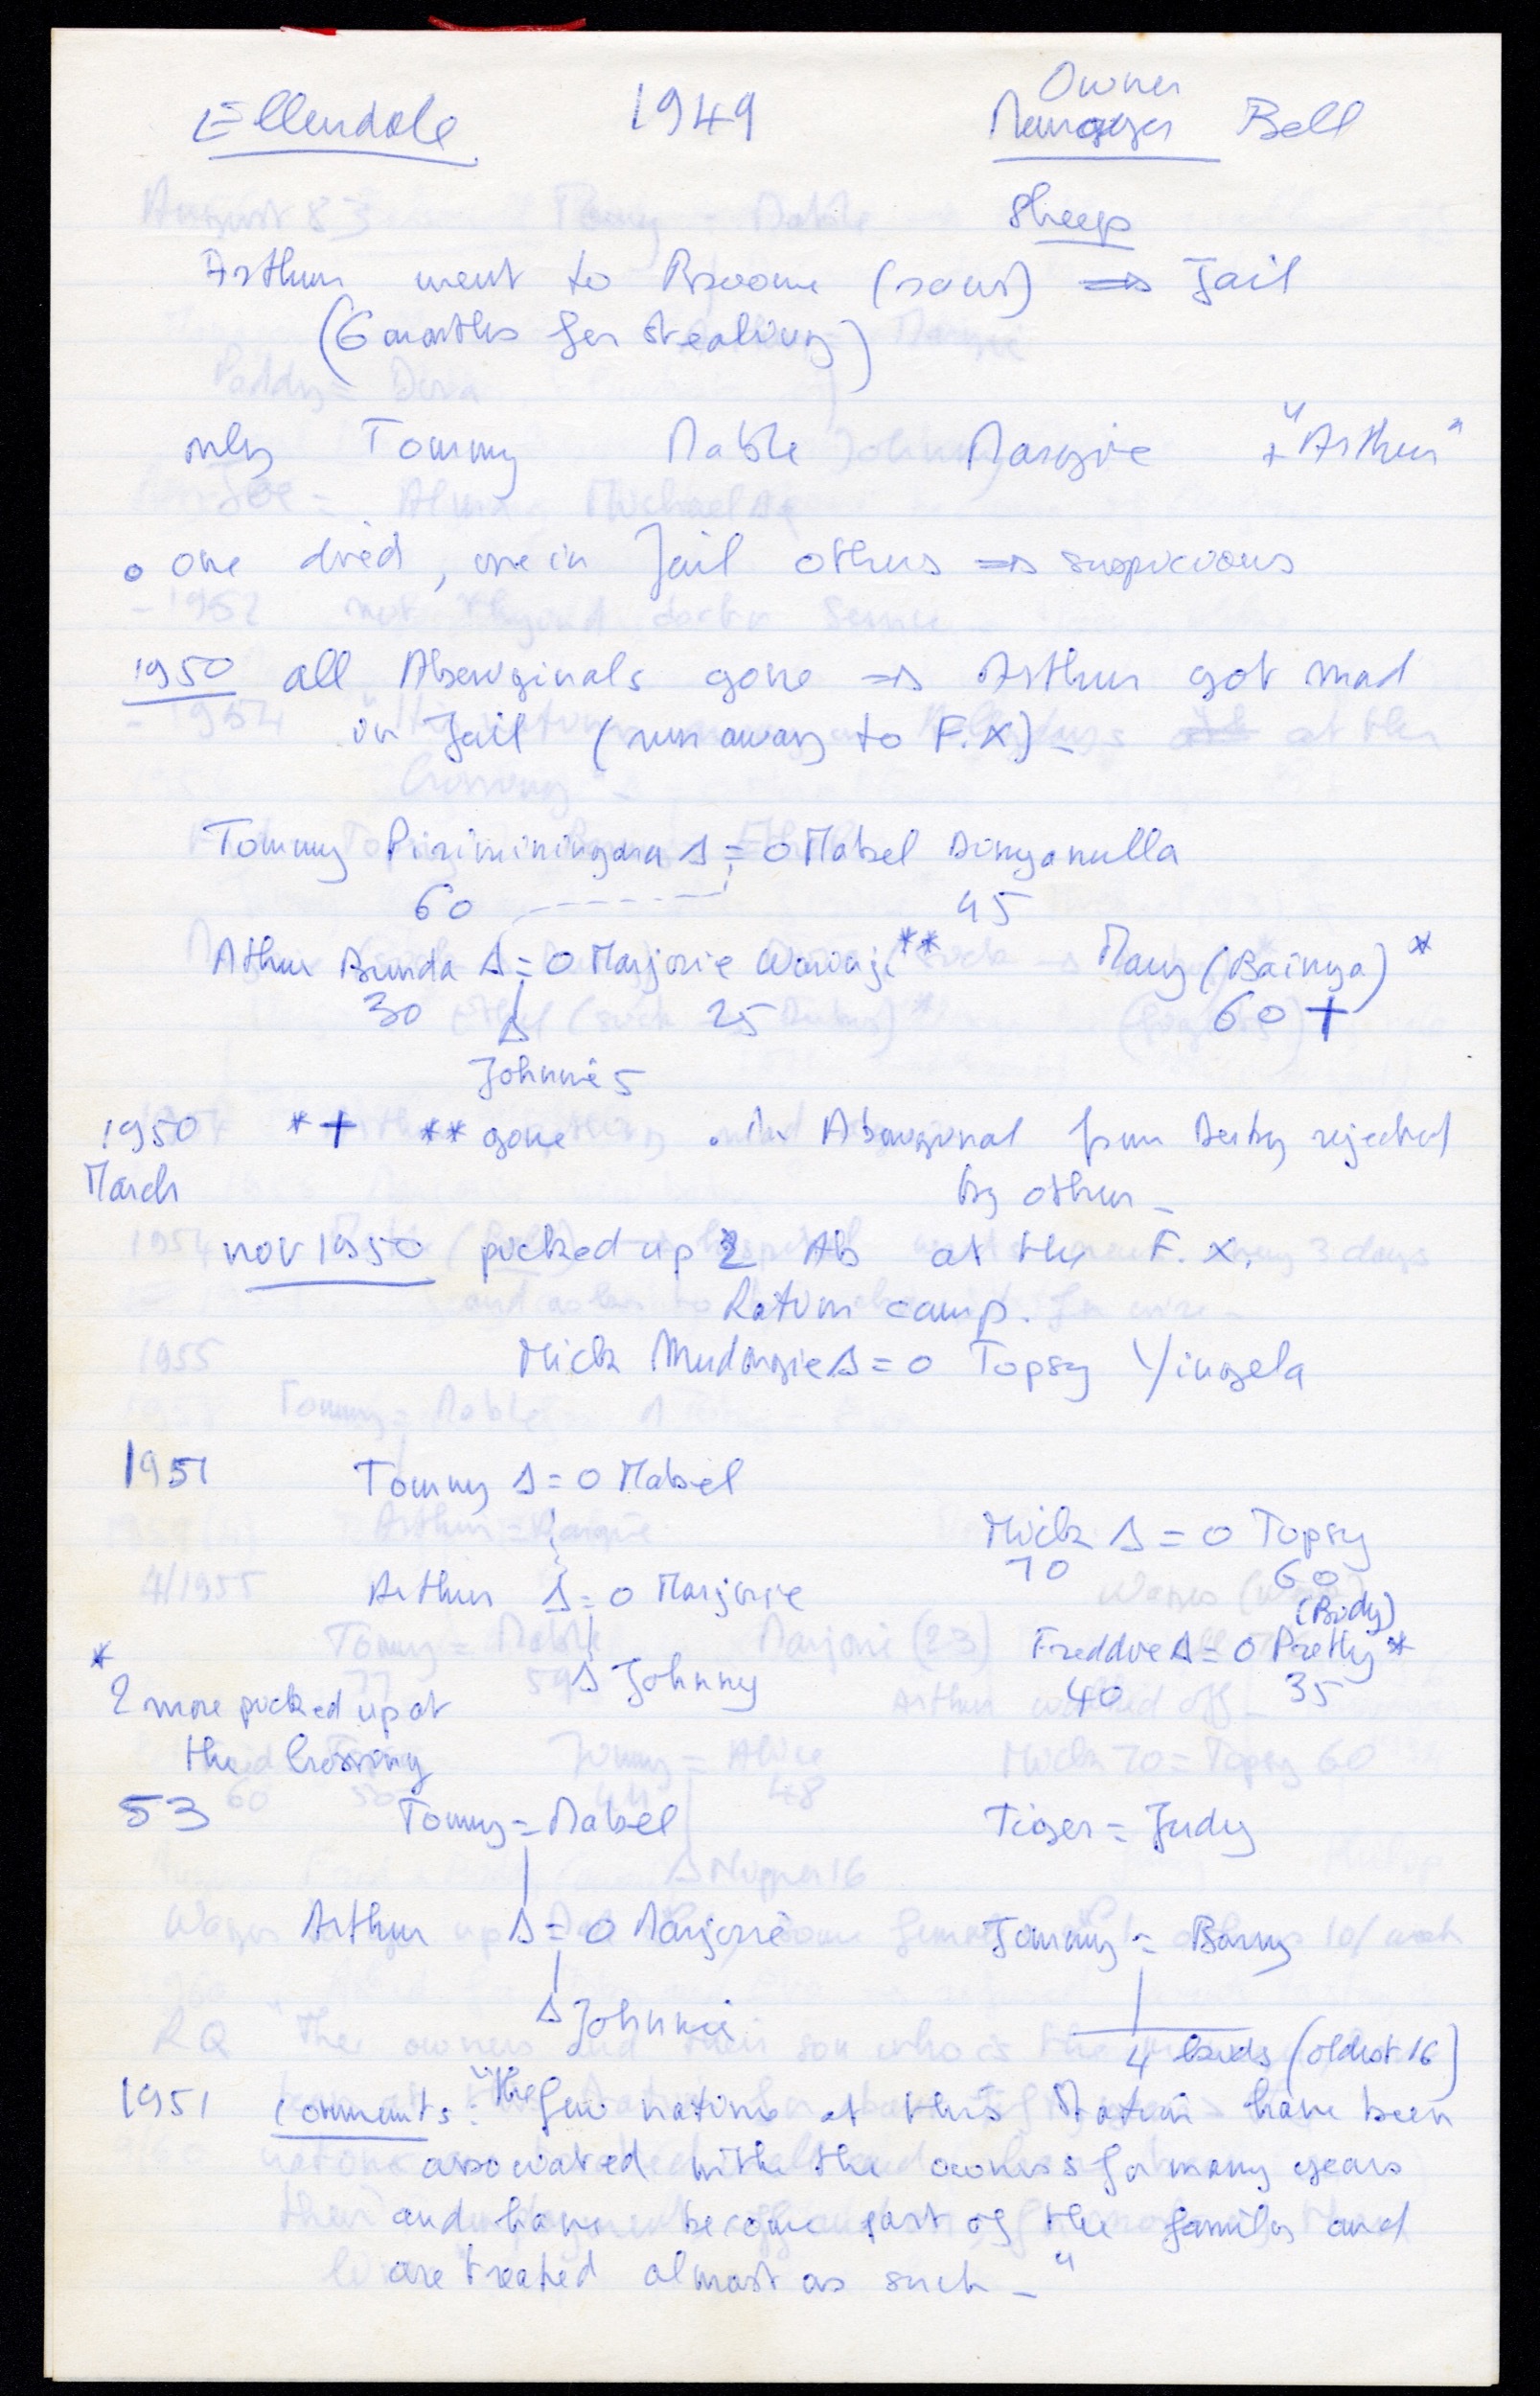 Ellendale 1949 Owner
Manager Bell
Sheep
Arthur went to Broome ⇒ Jail
(6 months for stealing)
only Tommy Mable Margie + "Arthur"
o one died, one in Jail others ⇒ suspicious
1950 all Aboriginals gone ⇒ Arthur got mad
in Jail (run away to F.X) -
Tommy Piriminingarra Δ = O Mabel Dinyanulla
60 45
Athur Bunda Δ = O Marjorie Wawaji ** Mary (Bainya) *
30 Δ 25 60 +
Johnnie 5
1950 * + ** gone . An Aboriginal from Derby rejected
March by other -
nov 1950 picked up 2 Ab at the F. X.
Ration camp.
Mick Mudangie Δ = O Topsy Yingela
1951 Tommy Δ = O Mabel
Mick Δ = O Topsy
70 60
Arthur Δ = O Marjorie
(Body)
Freddie Δ = O Pretty *
* Δ Johnny 40 35
2 more picked up at
the Crossing
53 Tommy = Mabel Tiger = Judy
Arthur Δ = O Marjorie Tommy = Barny
Δ Johnnie
4 kids (oldest 16)
1951 Comments: "The few natives at this Station have been
associated with the owners for many years
and have become part of the family and
are treated almost as such - "